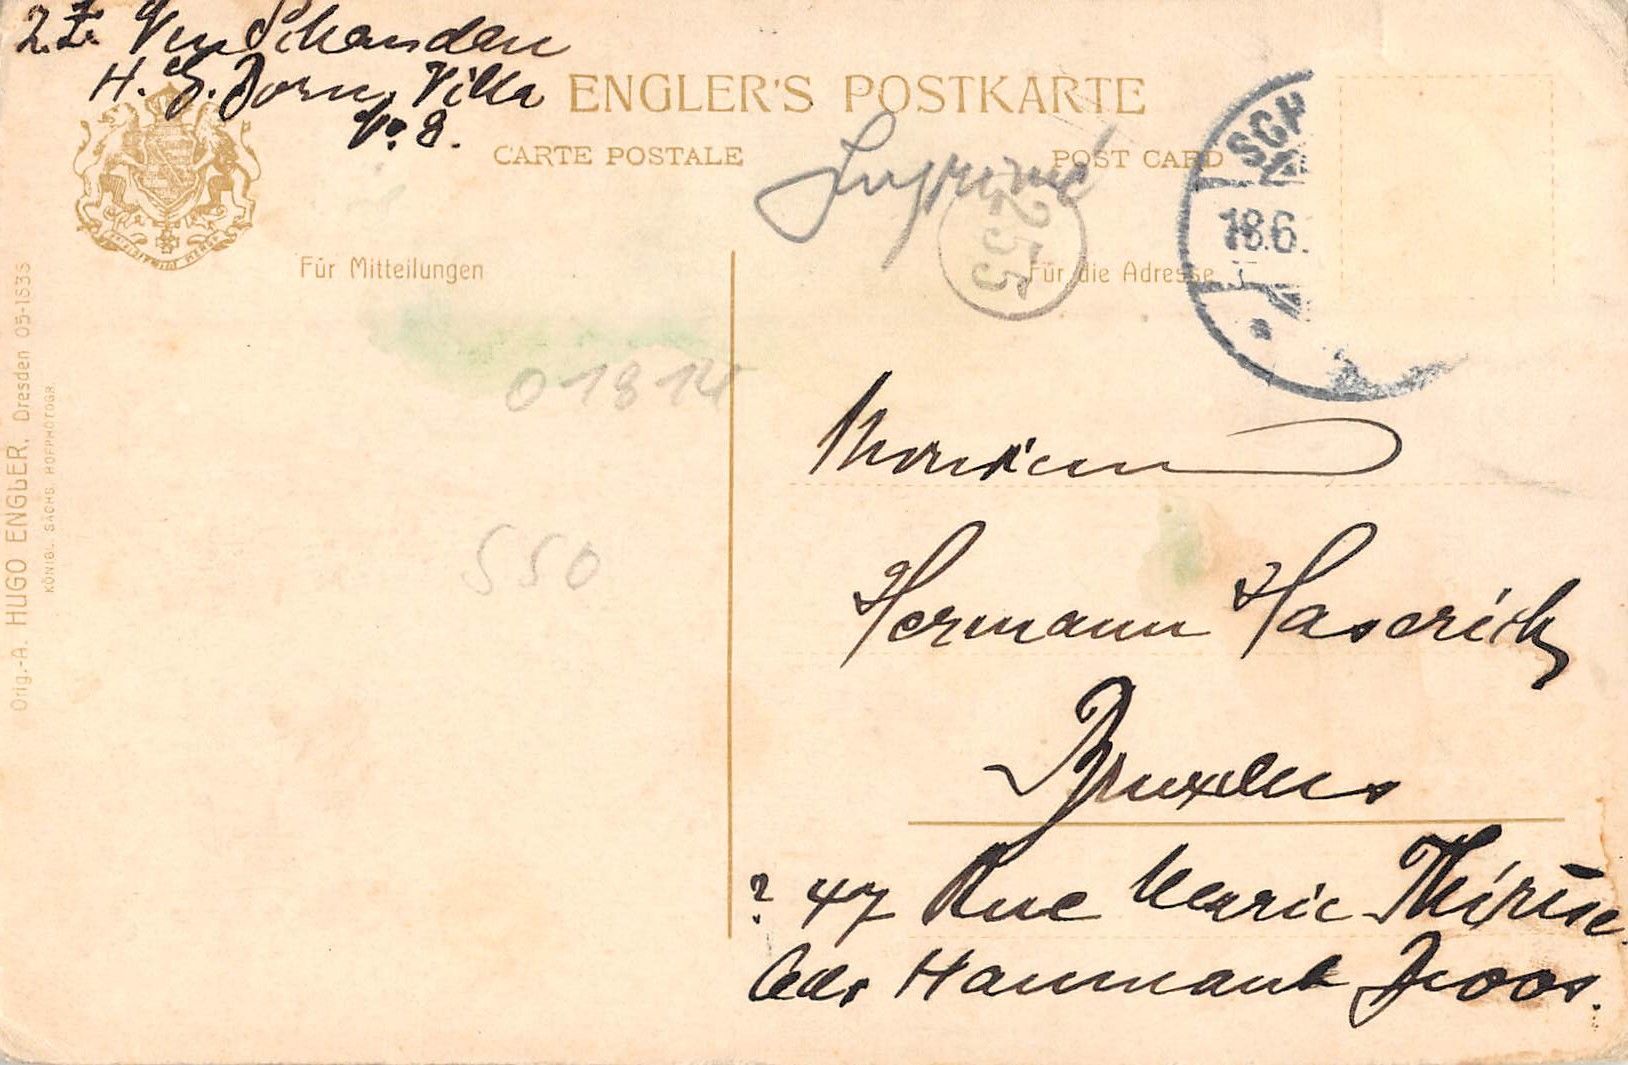 z. Z.
H. G. Dorn, Villa
No. 8.
ENGLER'S POSTKARTE
CARTE POSTALE POST CARD
SCH
18.6.
255
Für Mitteilungen
Für die Adresse
01814
550
Monsieur
Hermann Haserick
Bruxelles
? 47 Rue Marie Thérèse
Adr. Haumant
Orig.-A. HUGO ENGLER, Dresden 05-1635
KÖNIGL. SÄCHS. HOFPHOTOGR.